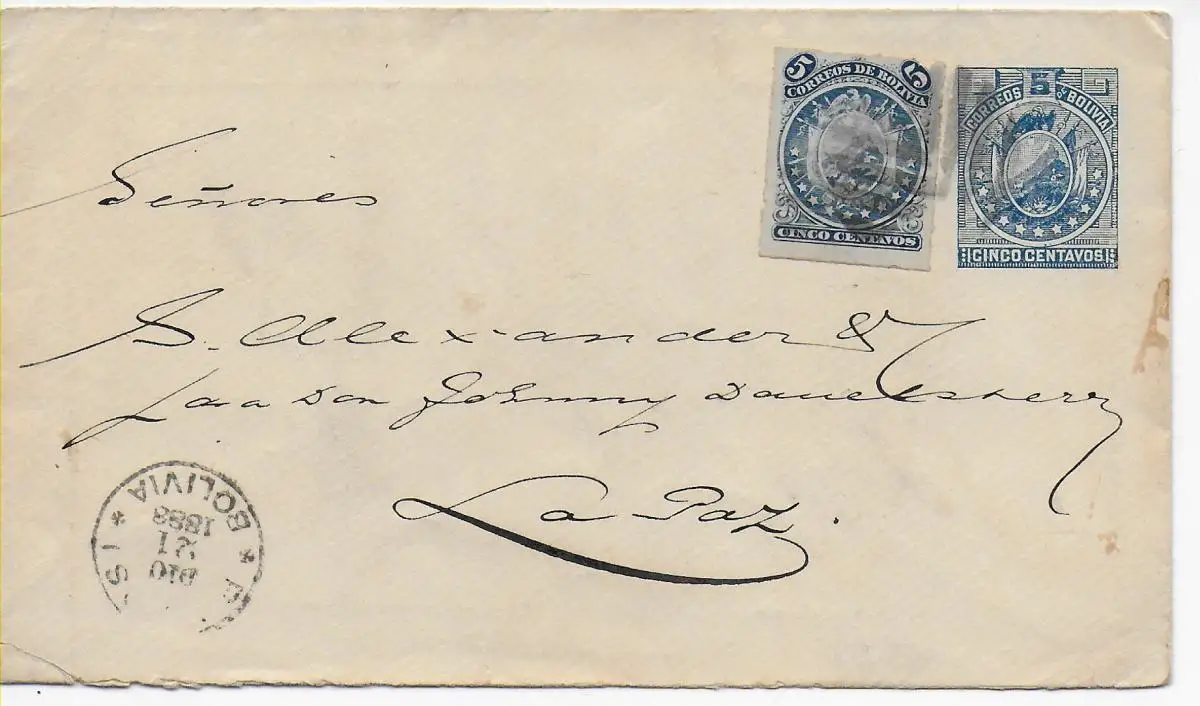 5 5
CORREOS DE BOLIVIA
CINCO CENTAVOS
5
CORREOS DE BOLIVIA
CINCO CENTAVOS
Señores
S. Alexander &
Don Johnny
La Paz.
* BOLIVIA *
1888
21
DIC